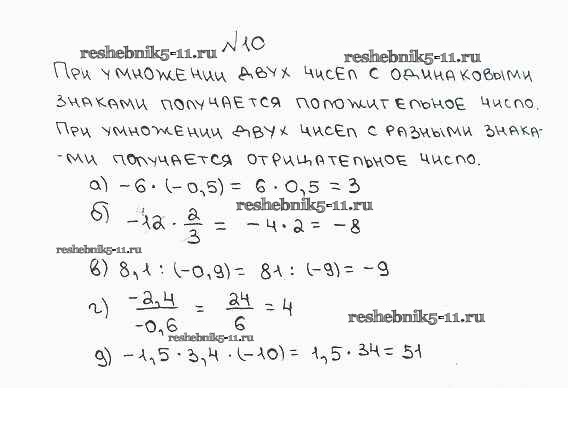 №10
reshebnik5-11.ru
reshebnik5-11.ru
При умножении двух чисел с одинаковыми
знаками получается положительное число.
При умножении двух чисел с разными знака-
-ми получается отрицательное число.
а) -6 · (-0,5) = 6 · 0,5 = 3
reshebnik5-11.ru
б) -12 · 2/3 = -4 · 2 = -8
reshebnik5-11.ru
в) 8,1 : (-0,9) = 81 : (-9) = -9
г) -2,4/-0,6 = 24/6 = 4
reshebnik5-11.ru
reshebnik5-11.ru
д) -1,5 · 3,4 · (-10) = 1,5 · 34 = 51